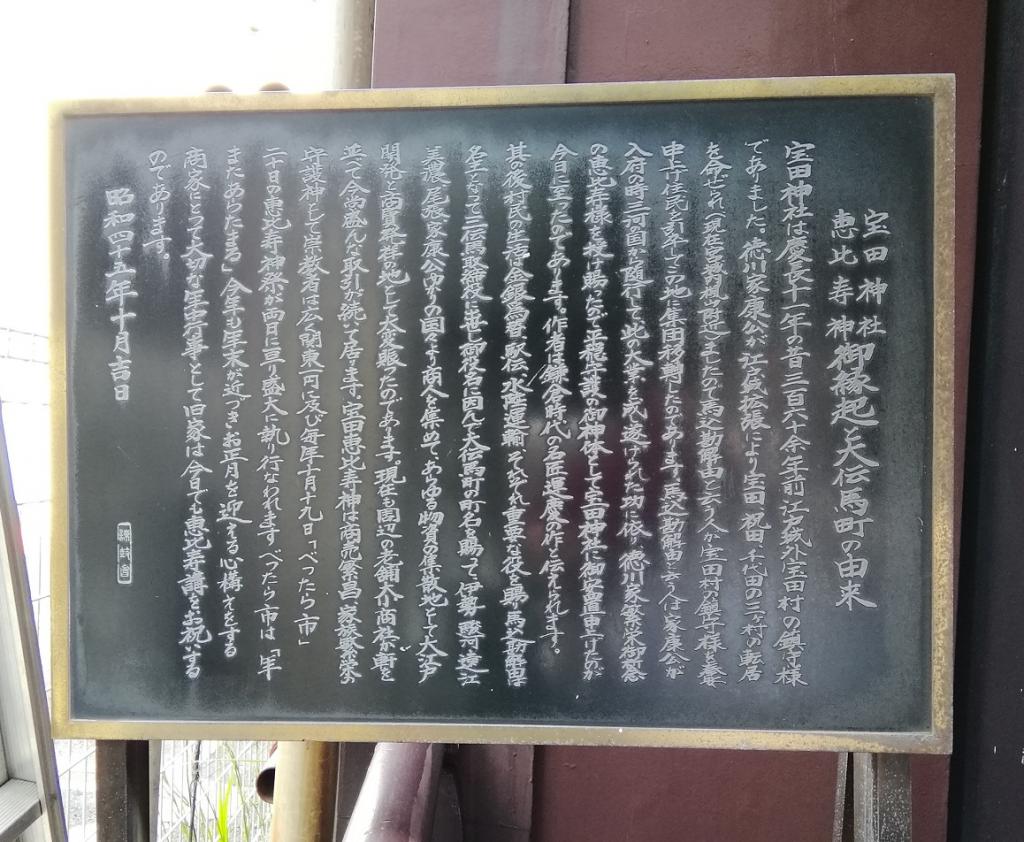 宝田神社
恵比寿神
御縁起と大伝馬町の由来
宝田神社は慶長十一年の昔三百六十余年前江戸城外宝田村の鎮守様
でありました。徳川家康公が江戸城拡張により宝田、祝田、千代田の三ヶ村の転居
を命ぜられ(現在宮城観附近)ましたので馬込勘解由と云う人が宝田村の鎮守様を奉安
申上げ住民を引率してこの地に集団移動したのであります。馬込勘解由と云う人は家康公が
入府の時三河の国から随行して此の大業を成し遂げられた功に依り徳川家繁栄御祈念
の恵比寿様を授け賜ったので平穏守護の御神体として宝田神社に御安置申上げたのが
今日に至ったのであります。作者は鎌倉時代の名匠運慶の作と伝えられます。
其の後村民の生活は金銀為替、駅伝、水陸運輸、それぞれ重要な役を賜り馬込勘解由は
名主となって三伝馬取締役に出世し御役名に因んで大伝馬町の町名を賜って伊勢、駿河、遠江
美濃、尾張、家康公ゆかりの国々より商人を集めてあらゆる物資の集散地として大江戸
開発と商業発祥の地として大変賑ったのであります。現在も周辺の老舗大小商社が軒を
並べて今尚盛んな取引が続いて居ります。宝田恵比寿神は商売繁昌、家族繁栄の
守護神として崇敬者は広く関東一円に及び毎年十月十九日「べったら市」
二十日の恵比寿神祭が両日に亘り盛大に執り行なわれます べったら市は「年
またあらたまる」今年も年末が近づきお正月を迎える心構えをする
商家にとって大切な年中行事として旧家は今日でも恵比寿講をお祝いする
のであります。
昭和四十五年十月吉日